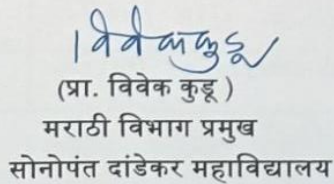 विवेक कुडू
(प्रा. विवेक कुडू )
मराठी विभाग प्रमुख
सोनोपंत दांडेकर महाविद्यालय